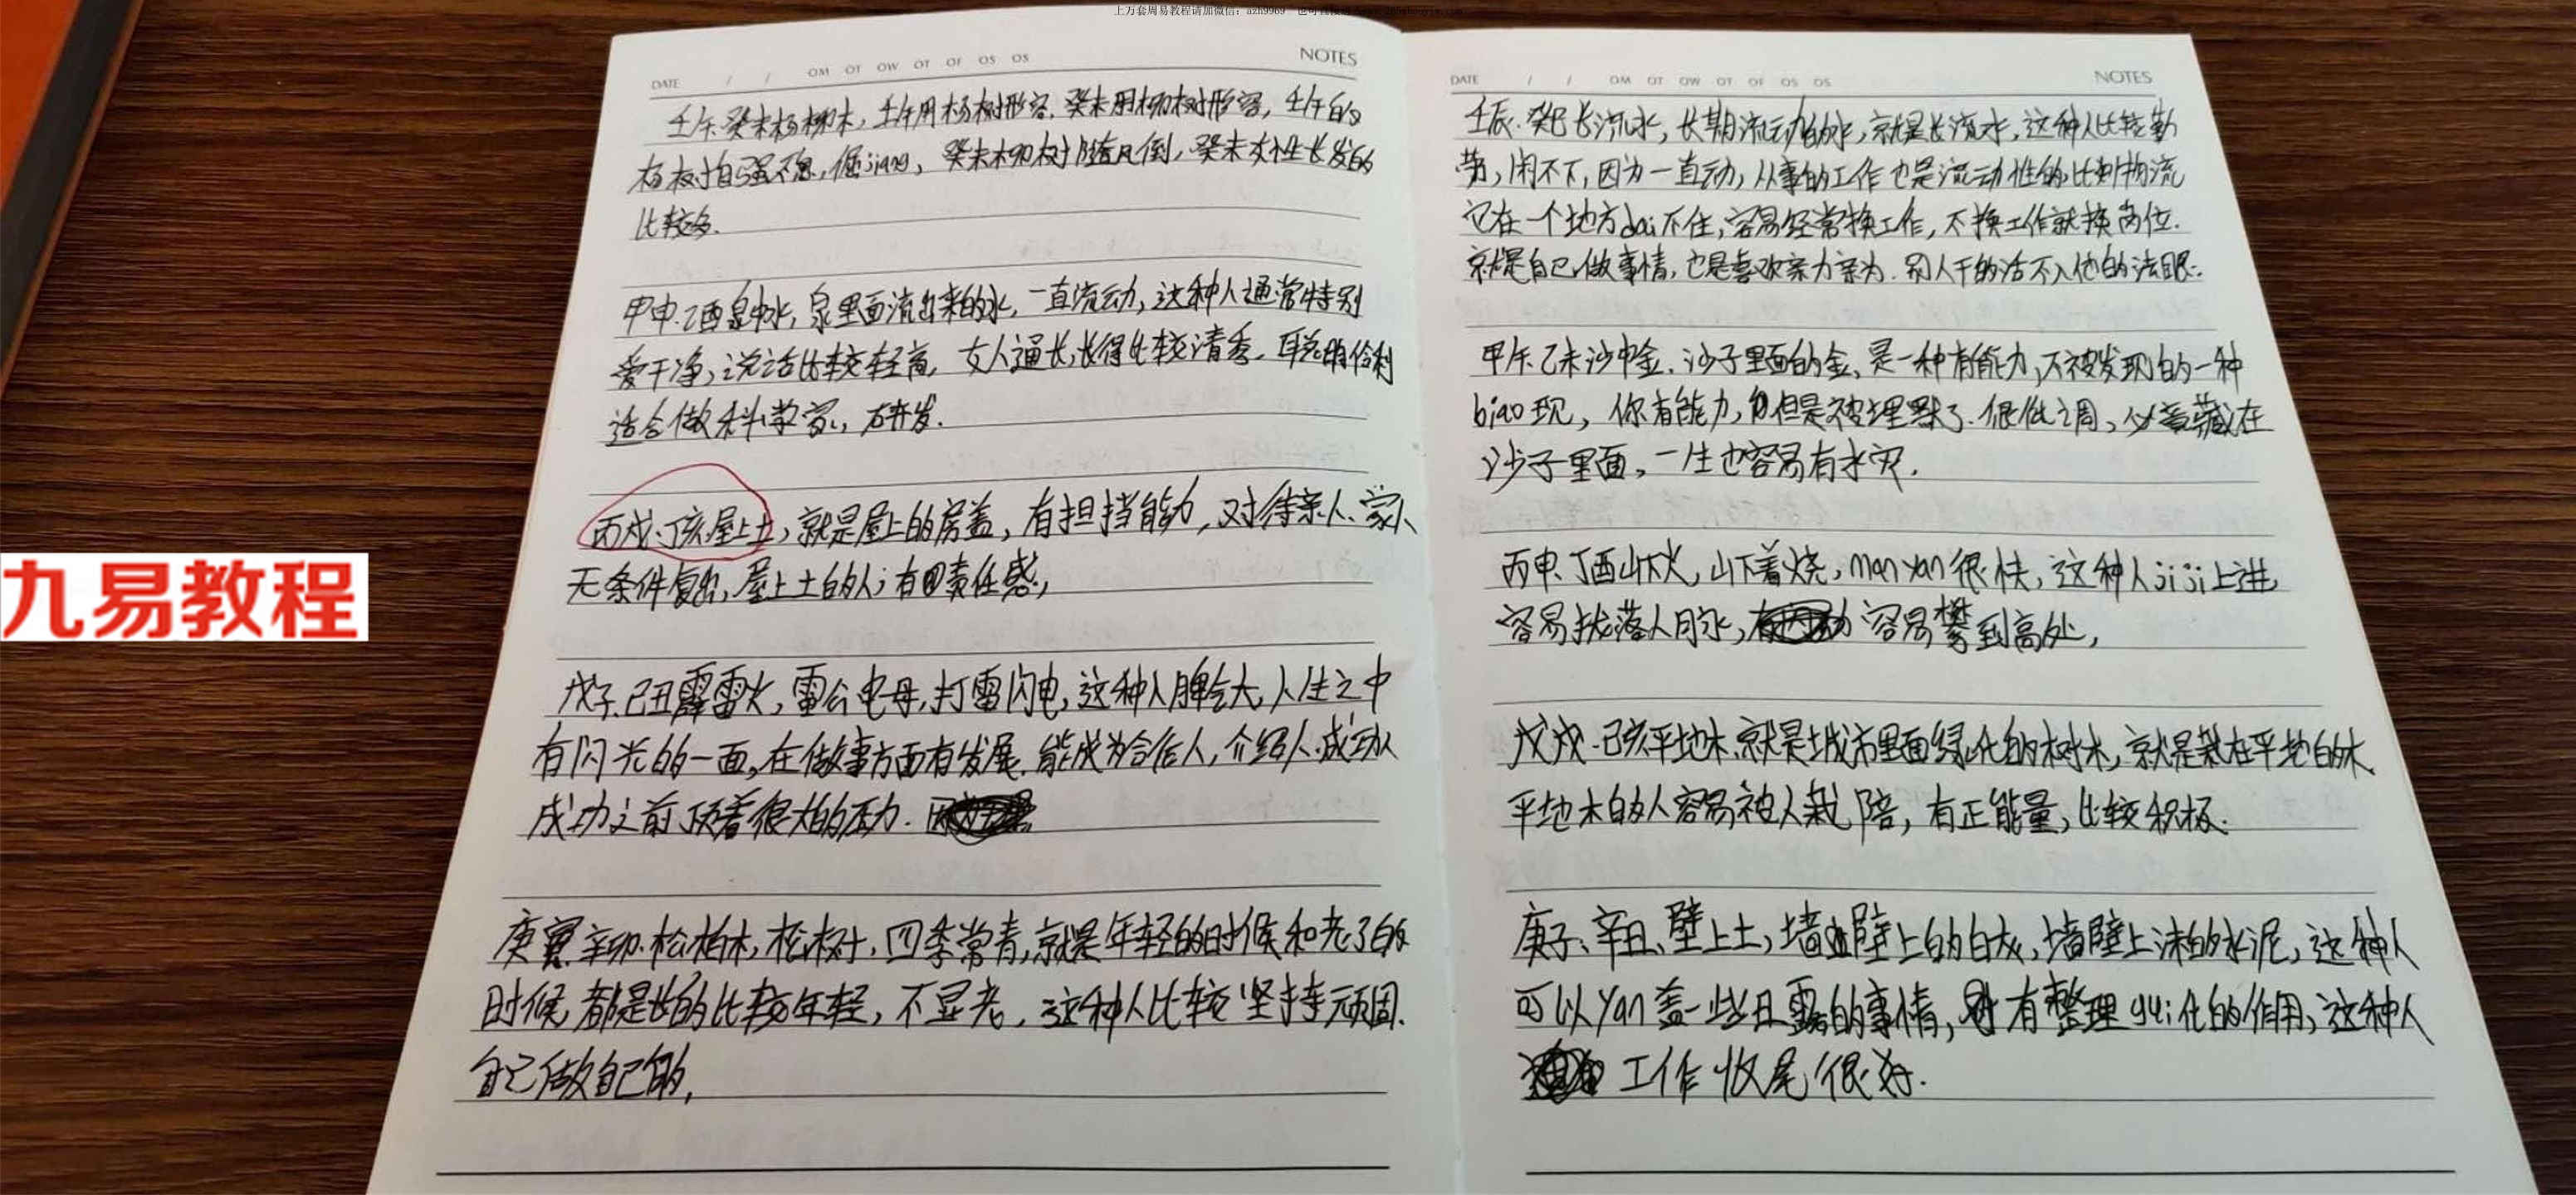 上万套周易教程请加微信：azh9969
九易教程
DATE / / OM OT OW OT OF OS OS NOTES
壬午.癸未杨柳木，壬午用杨树形容.癸未用柳树形容，壬午的
杨树自强不息，倔jiang，癸未柳树随风倒，癸未女性长发的
比较多.
甲申.乙酉泉中水，泉里面流出来的水，一直流动，这种人通常特别
爱干净，说话比较轻高，女人通长，长得比较清秀.耳总明伶利
适合做科学家，研发.
丙戌.丁亥.屋上土，就是屋上的房盖，有担挡能力，对待亲人、家人
无条件复出，屋上土的人；有责任感，
戊子.己丑霹雷火，雷公电母，打雷闪电，这种人脾气大，人生之中
有闪光的一面，在做事方面有发展.能成为合作人，介绍人.成功人
成功之前顶着很大的压力.
庚寅.辛卯.松柏木，松树，四季常青，就是年轻的时候和老了的
时候都是长的比较年轻，不显老，这种人比较坚持顽固.
自己做自己的，
DATE / / OM OT OW OT OF OS OS NOTES
壬辰.癸巳长流水，长期流动的水，就是长流水，这种人比较勤
劳，闲不下，因为一直动，从事的工作也是流动性的比如物流
它在一个地方dai不住，容易经常换工作，不换工作就换岗位.
就是自己做事情，也是喜欢亲力亲为.别人干的活不入他的法眼.
甲午.乙未沙中金.沙子里面的金，是一种有能力，不被发现的一种
biao现，你有能力，但是被埋默了.很低调，必藏在
沙子里面，一生也容易有水灾.
丙申.丁酉山下火，山下着烧，man yan很快，这种人jiji上进，
容易拢落人月永，容易攀到高处，
戊戌.己亥平地木.就是城市里面绿化的树木，就是栽在平地的木
平地木的人容易被人栽陪，有正能量，比较积极.
庚子、辛丑、壁上土，墙壁上的白灰，墙壁上沫的水泥，这种人
可以yan盖一些丑露的事情，有整理gui化的作用，这种人
工作收尾很好.